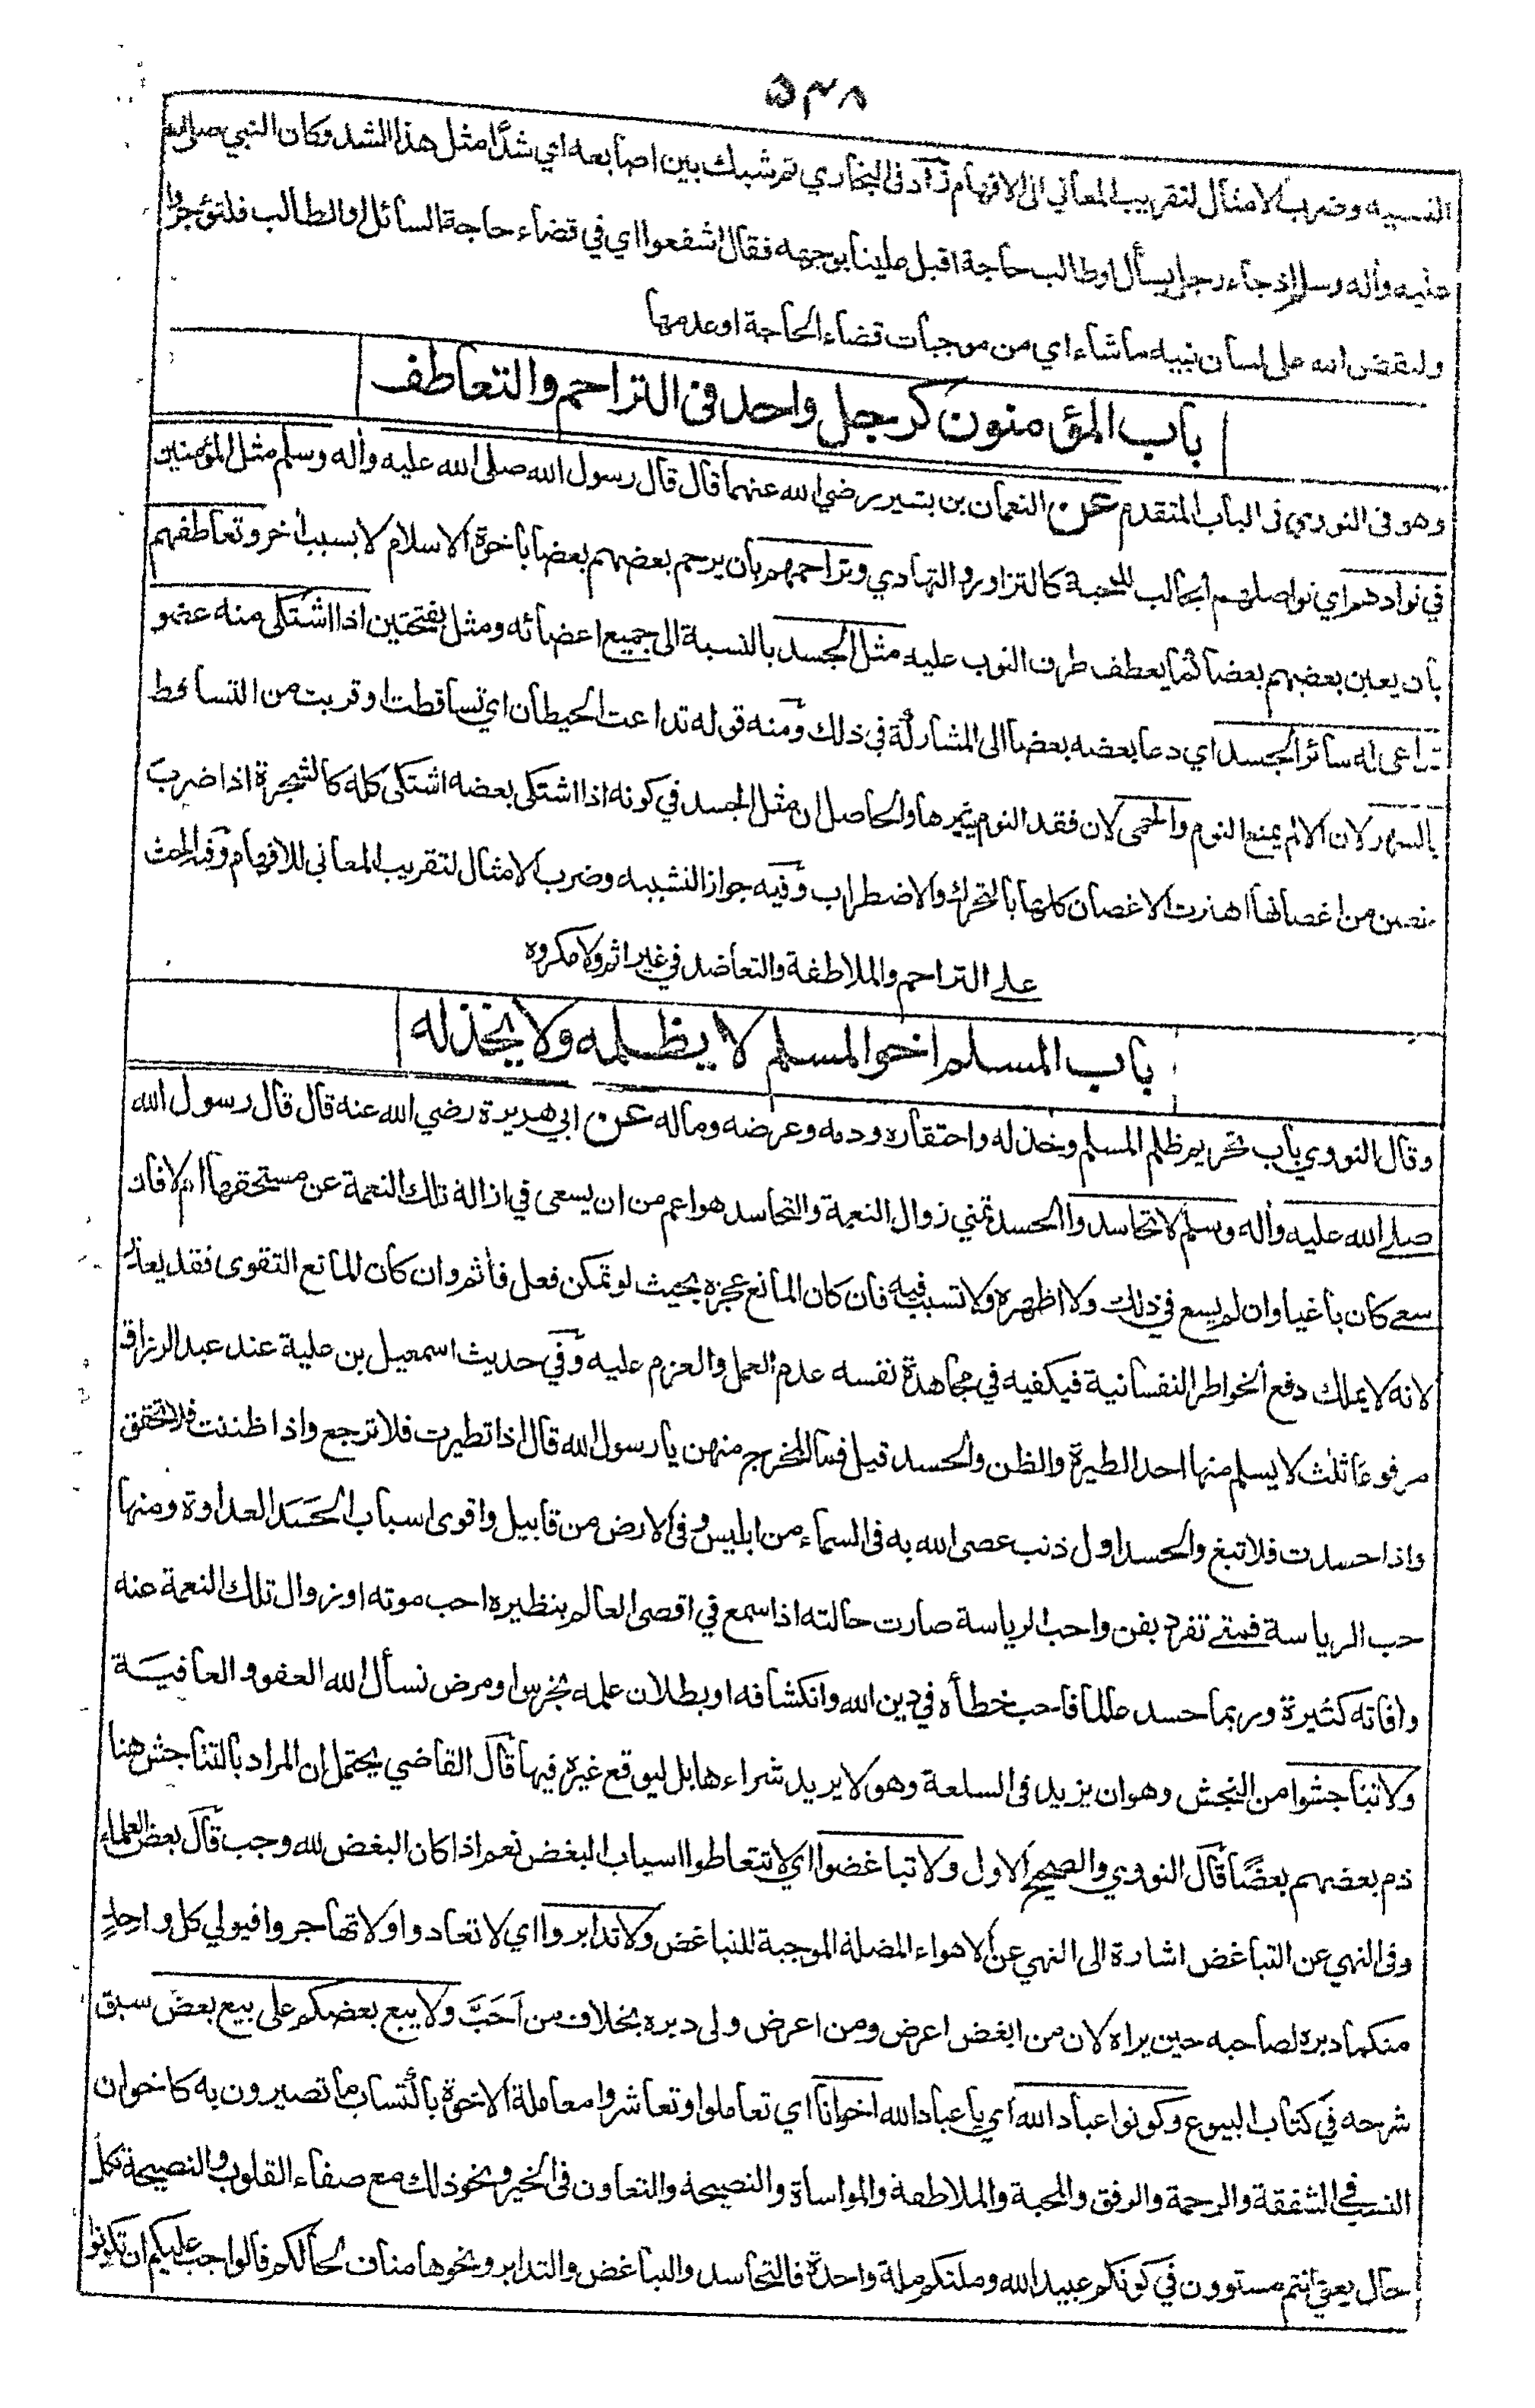 ۵۳۸
التنبيه وضرب الامثال لتقريب المعاني الى الافهام زاد فى البخاري ثم شبك بين اصابعه اي شدًا مثل هذا الشد وكان النبي صلى الله
عليه واٰله وسلم اذ جاء رجل يسأل او طالب حاجة اقبل علينا بوجهه فقال اشفعوا اي في قضاء حاجة السائل او الطالب فلتؤجروا
وليقض الله على لسان نبيه ما شاء اي من موجبات قضاء الحاجة او عدمها
باب المؤمنون كرجل واحد فى التراحم والتعاطف
وهو فى النووي فى الباب المتقدم عن النعمان بن بشير رضي الله عنهما قال قال رسول الله صلى الله عليه واٰله وسلم مثل المؤمنين
في توادهم اي تواصلهم الجالب للمحبة كالتزاور والتهادي وتراحمهم بان يرحم بعضهم بعضا باخوة الاسلام لا بسبب اٰخر وتعاطفهم
بان يعين بعضهم بعضا كما يعطف طرف الثوب عليه مثل الجسد بالنسبة الى جميع اعضائه ومثل بفتحتين اذا اشتكى منه عضو
تداعى له سائر الجسد اي دعا بعضه بعضا الى المشاركة في ذلك ومنه قوله تداعت الحيطان اي تساقطت او قربت من التساقط
بالسهر لان الالم يمنع النوم والحمى لان فقد النوم يثيرها والحاصل ان مثل الجسد في كونه اذا اشتكى بعضه اشتكى كله كالشجرة اذا ضرب
غصن من اغصانها اهتزت الاغصان كلها بالتحرك والاضطراب وفيه جواز التشبيه وضرب الامثال لتقريب المعاني للافهام وفيه الحث
على التراحم والملاطفة والتعاضد في غير اثم ولا مكروه
باب المسلم اخو المسلم لا يظلمه ولا يخذله
وقال النووي باب تحريم ظلم المسلم وخذله واحتقاره ودمه وعرضه وماله عن ابي هريرة رضي الله عنه قال قال رسول الله
صلى الله عليه واٰله وسلم لا تحاسدوا الحسد تمني زوال النعمة والتحاسد هو اعم من ان يسعى في ازالة تلك النعمة عن مستحقها ام لا فان
سعى كان باغيا وان لم يسع في ذلك ولا اظهره ولا تسبب فيه فان كان المانع عجزه بحيث لو تمكن فعل فاٰثم وان كان المانع التقوى فقد يعذر
لانه لا يملك دفع الخواطر النفسانية فيكفيه في مجاهدة نفسه عدم العمل والعزم عليه وفي حديث اسمعيل بن علية عند عبد الرزاق
مرفوعا ثلث لا يسلم منها احد الطيرة والظن والحسد قيل فما المخرج منهن يا رسول الله قال اذا تطيرت فلا ترجع واذا ظننت فلا تحقق
واذا حسدت فلا تبغ والحسد اول ذنب عصى الله به فى السماء من ابليس وفى الارض من قابيل واقوى اسباب الحسد العداوة ومنها
حب الرياسة فمتى تفرد بفن واحب الرياسة صارت حالته اذا سمع في اقصى العالم بنظيره احب موته او زوال تلك النعمة عنه
واٰفاته كثيرة وربما حسد عالما فاحب خطأه في دين الله وانكشافه او بطلان علمه بخرس او مرض نسأل الله العفو والعافية
ولا تناجشوا من النجش وهو ان يزيد فى السلعة وهو لا يريد شراءها بل ليوقع غيره فيها قال القاضي يحتمل ان المراد بالتناجش هنا
ذم بعضهم بعضًا قال النووي والصحيح الاول ولا تباغضوا اي لا تتعاطوا اسباب البغض نعم اذا كان البغض لله وجب قال بعض العلماء
وفى النهي عن التباغض اشارة الى النهي عن الاهواء المضلة الموجبة للتباغض ولا تدابروا اي لا تعادوا ولا تهاجروا فيولي كل واحدٍ
منكما دبره لصاحبه حين يراه لان من ابغض اعرض ومن اعرض ولى دبره بخلاف من اَحَبَّ ولا يبع بعضكم على بيع بعض سبق
شرحه في كتاب البيوع وكونوا عباد الله اي يا عباد الله اخوانا اي تعاملوا وتعاشروا معاملة الاخوة باكتساب ما تصيرون به كاخوان
النسب في الشفقة والرحمة والرفق والمحبة والملاطفة والمواساة والنصيحة والتعاون فى الخير ونحو ذلك مع صفاء القلوب والنصيحة بكل
حال يعني انتم مستوون في كونكم عبيد الله وملتكم ملة واحدة فالتحاسد والتباغض والتدابر ونحوها مناف لحالكم فالواجب عليكم ان تكونوا